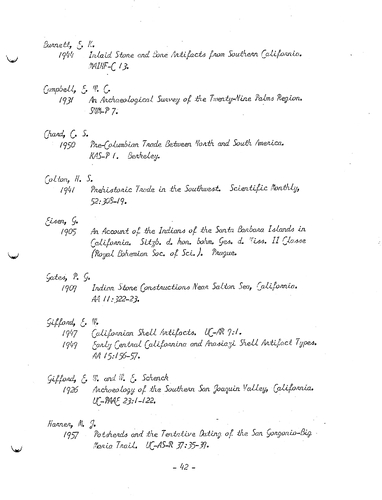 Burnett, E. K.
1944 Inlaid Stone and Bone Artifacts from Southern California.
MAINF-C 13.
Campbell, E. W. C.
1931 An Archaeological Survey of the Twenty-Nine Palms Region.
SWM-P 7.
Chard, C. S.
1950 Pre-Columbian Trade Between North and South America.
KAS-P 1. Berkeley.
Colton, H. S.
1941 Prehistoric Trade in the Southwest. Scientific Monthly,
52:308-19.
Eisen, G.
1905 An Account of the Indians of the Santa Barbara Islands in
California. Sitzb. d. kon. bohm. Ges. d. Wiss. II Classe
(Royal Bohemian Soc. of Sci.). Prague.
Gates, P. G.
1909 Indian Stone Constructions Near Salton Sea, California.
AA 11:322-23.
Gifford, E. W.
1947 Californian Shell Artifacts. UC-AR 9:1.
1949 Early Central Californina and Anasazi Shell Artifact Types.
AA 15:156-57.
Gifford, E. W. and W. E. Schenck
1926 Archaeology of the Southern San Joaquin Valley, California.
UC-PAAE 23:1-122.
Harner, M. J.
1957 Potsherds and the Tentative Dating of the San Gorgonio-Big
Maria Trail. UC-AS-R 37:35-39.
- 42 -